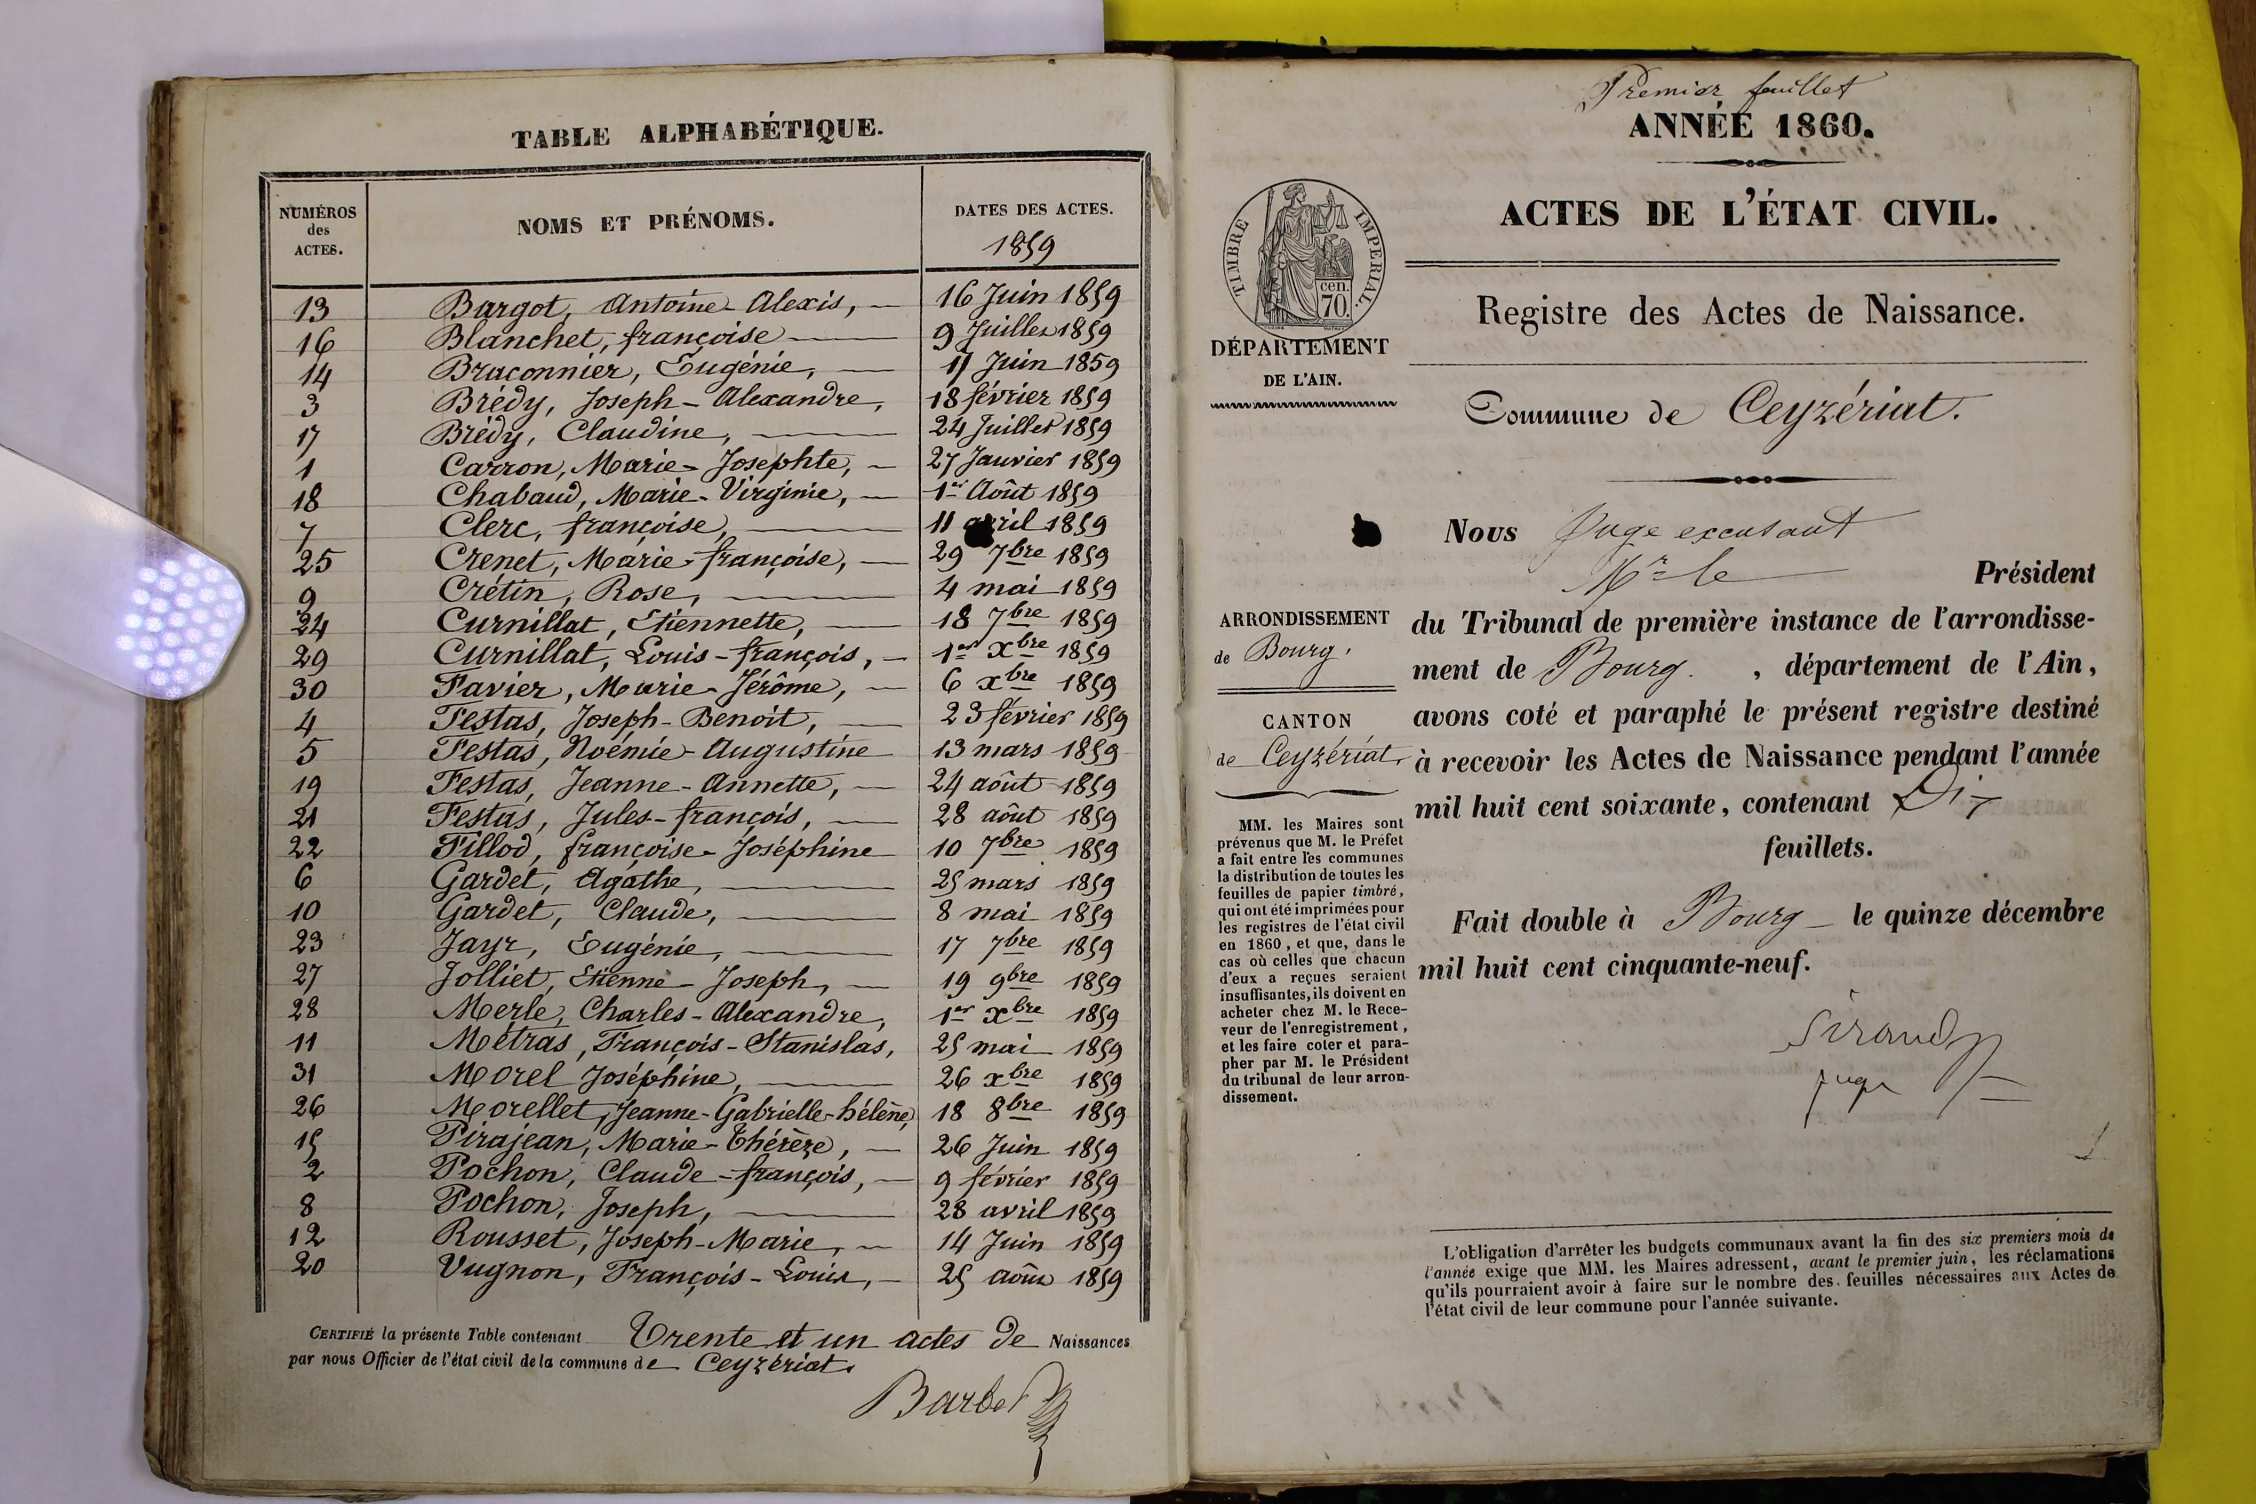 TABLE ALPHABÉTIQUE.
NUMÉROS des ACTES.
NOMS ET PRÉNOMS.
DATES DES ACTES.
1859
13 Bargot, Antoine-Alexis, 16 Juin 1859
16 Blanchet, françoise 9 Juillet 1859
14 Braconnier, Eugénie, 17 Juin 1859
3 Brédy, Joseph-Alexandre, 18 février 1859
17 Brédy, Claudine, 24 Juillet 1859
1 Carron, Marie-Josephte, 27 Janvier 1859
18 Chabaud, Marie-Virginie, 1er Août 1859
7 Clerc, françoise, 11 avril 1859
25 Crenet, Marie-françoise, 29 7bre 1859
9 Crétin, Rose, 4 mai 1859
24 Curnillat, Etiennette, 18 7bre 1859
29 Curnillat, Louis-françois, 1er xbre 1859
30 Favier, Marie-Jérôme, 6 xbre 1859
4 Festas, Joseph-Benoit, 23 février 1859
5 Festas, Noémie-Augustine 13 mars 1859
19 Festas, Jeanne-Annette, 24 août 1859
21 Festas, Jules-françois, 28 août 1859
22 Fillod, françoise-Joséphine 10 7bre 1859
6 Gardet, Agathe, 25 mars 1859
10 Gardet, Claude, 8 mai 1859
23 Jayr, Eugénie, 17 7bre 1859
27 Jolliet, Etienne-Joseph, 19 9bre 1859
28 Merle, Charles-Alexandre, 1er xbre 1859
11 Métras, François-Stanislas, 25 mai 1859
31 Morel Joséphine, 26 xbre 1859
26 Morellet, Jeanne-Gabrielle-hélène, 18 8bre 1859
15 Pirajean, Marie-Thérèze, 26 Juin 1859
2 Pochon, Claude-françois, 9 février 1859
8 Pochon, Joseph, 28 avril 1859
12 Rousset, Joseph-Marie, 14 Juin 1859
20 Vugnon, François-Louis, 25 août 1859
CERTIFIÉ la présente Table contenant Trente et un actes de Naissances
par nous Officier de l'état civil de la commune de Ceyzériat.
Barbet
Premier feuillet
ANNÉE 1860.
ACTES DE L'ÉTAT CIVIL.
Registre des Actes de Naissance.
TIMBRE IMPERIAL.
cen.
70.
DÉPARTEMENT
DE L'AIN.
Commune de Ceyzériat.
ARRONDISSEMENT
de Bourg.
CANTON
de Ceyzériat.
MM. les Maires sont
prévenus que M. le Préfet
a fait entre les communes
la distribution de toutes les
feuilles de papier timbré,
qui ont été imprimées pour
les registres de l'état civil
en 1860, et que, dans le
cas où celles que chacun
d'eux a reçues seraient
insuffisantes, ils doivent en
acheter chez M. le Rece-
veur de l'enregistrement,
et les faire coter et para-
pher par M. le Président
du tribunal de leur arron-
dissement.
Nous Juge excusant
Mr le Président
du Tribunal de première instance de l'arrondisse-
ment de Bourg. , département de l'Ain,
avons coté et paraphé le présent registre destiné
à recevoir les Actes de Naissance pendant l'année
mil huit cent soixante, contenant Dix
feuillets.
Fait double à Bourg le quinze décembre
mil huit cent cinquante-neuf.
Sirand
juge
L'obligation d'arrêter les budgets communaux avant la fin des six premiers mois de
l'année exige que MM. les Maires adressent, avant le premier juin, les réclamations
qu'ils pourraient avoir à faire sur le nombre des feuilles nécessaires aux Actes de
l'état civil de leur commune pour l'année suivante.